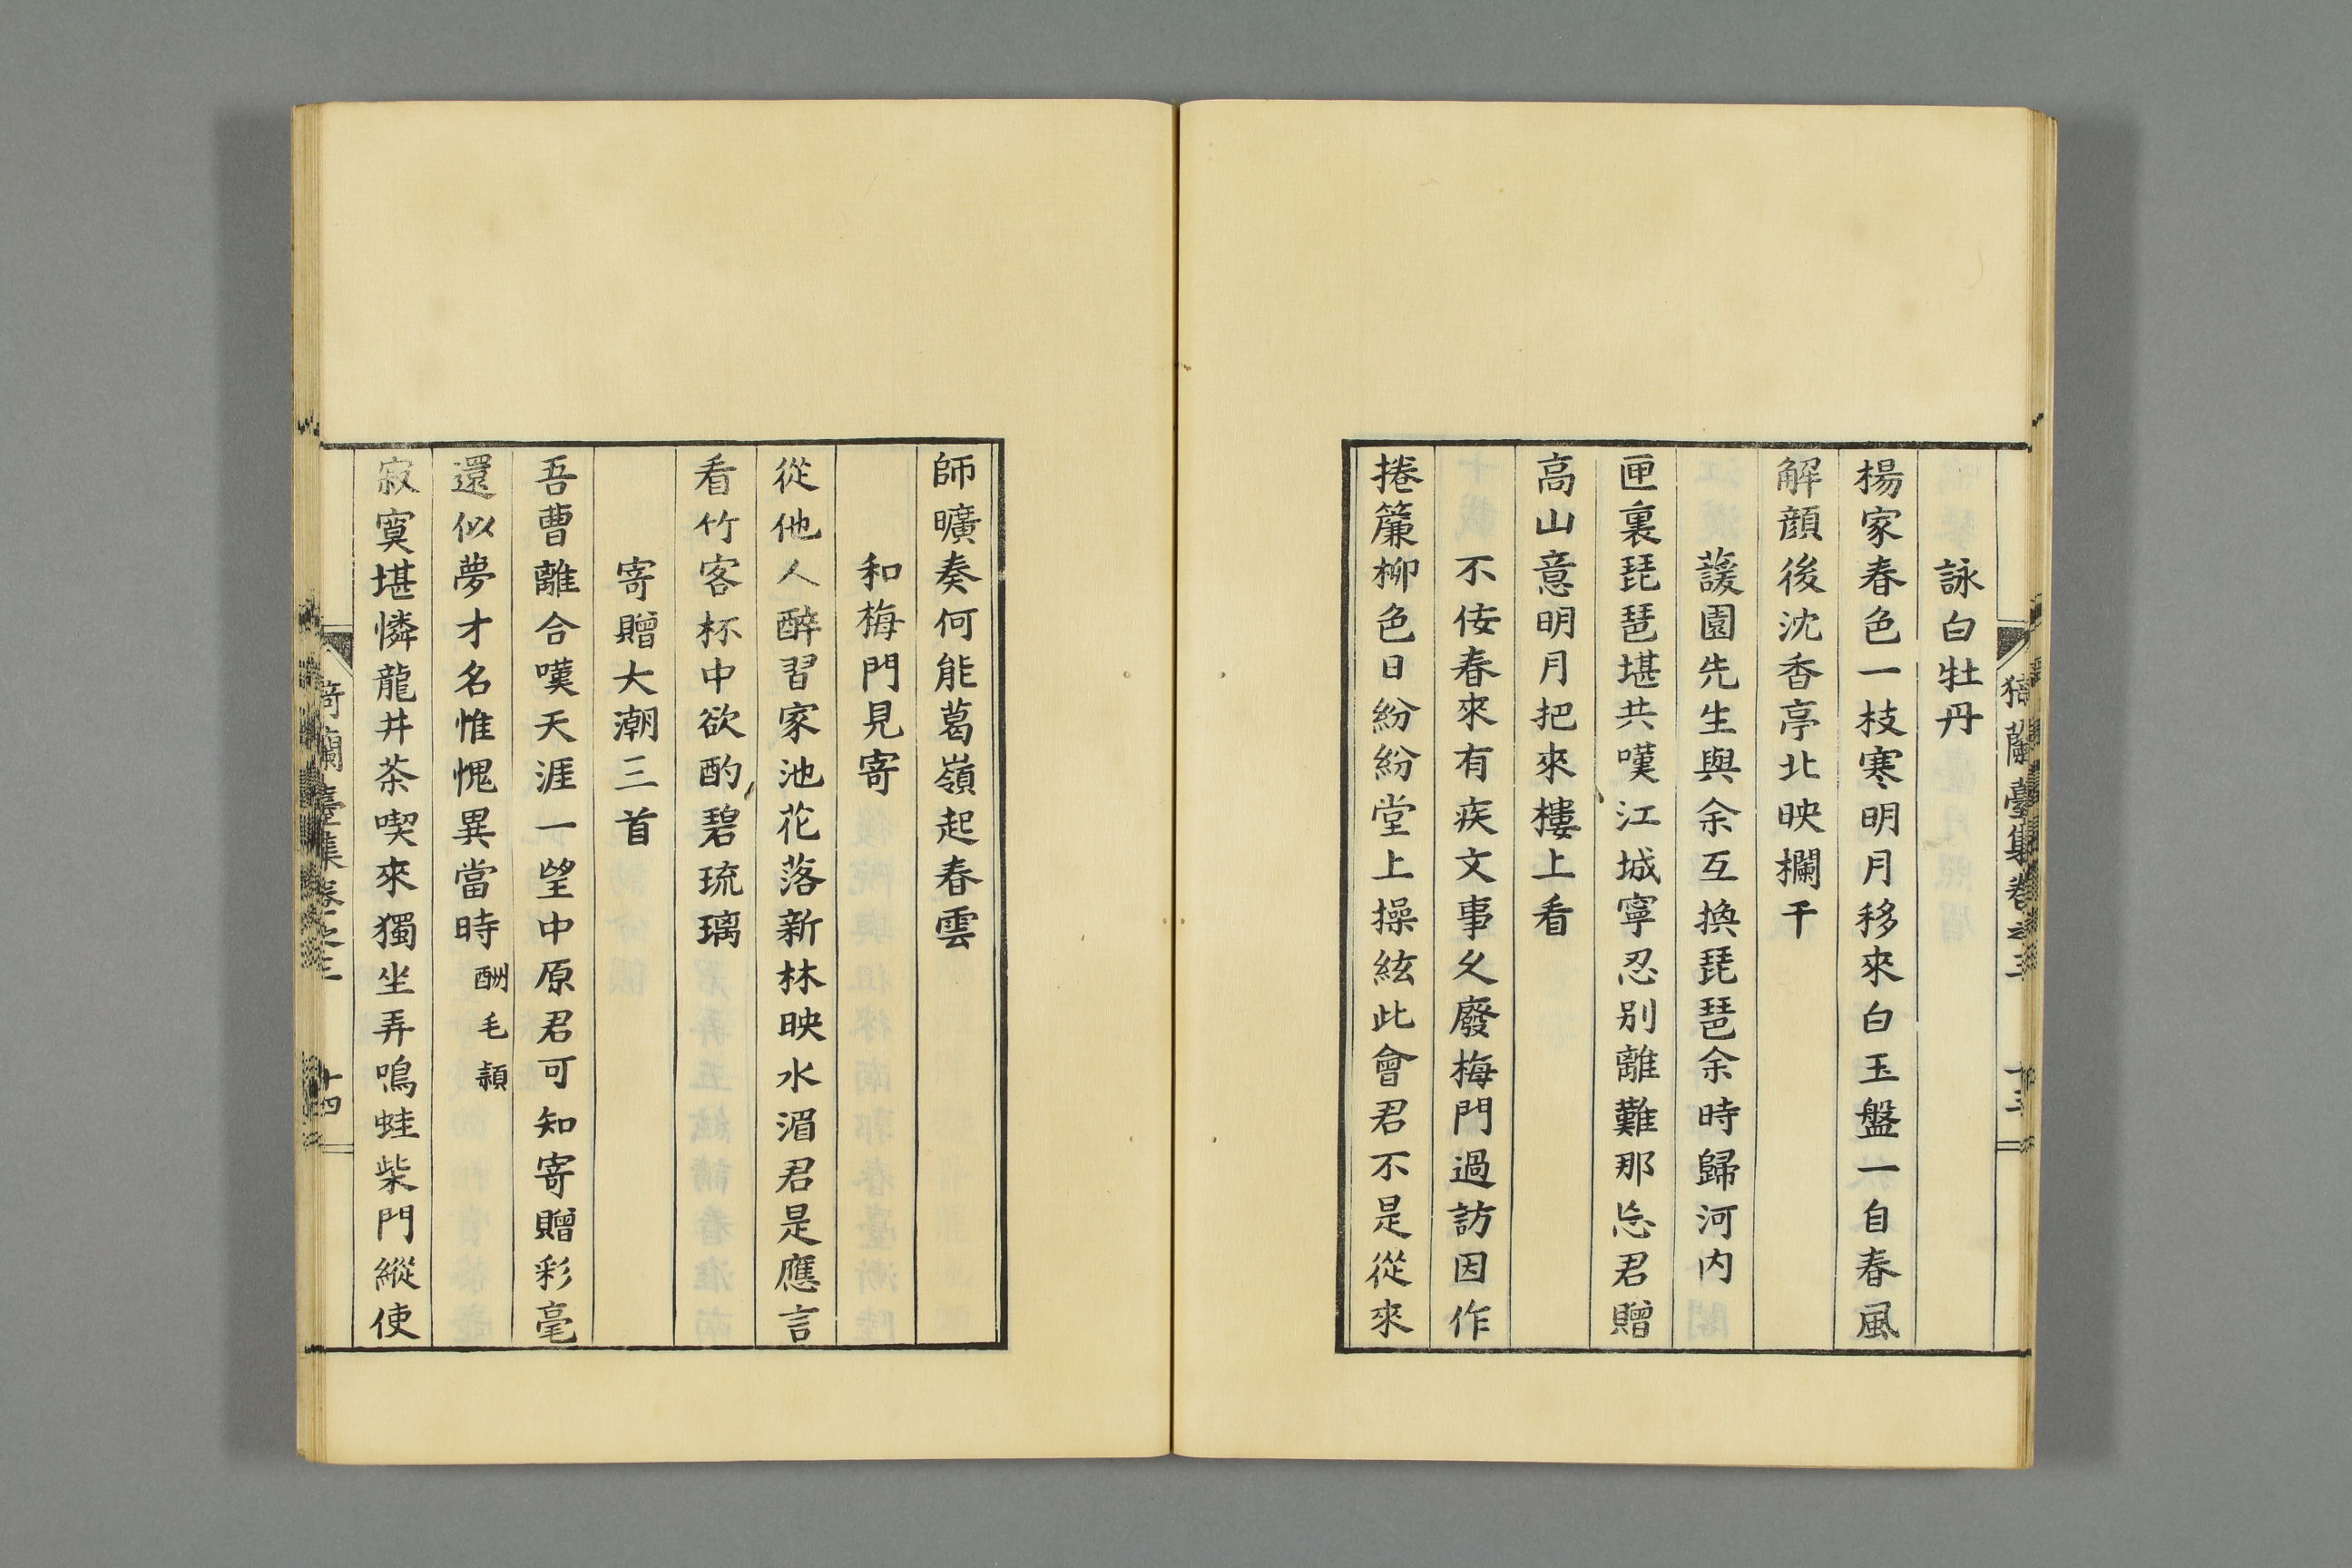 猗蘭臺集卷之三 十三
詠白牡丹
楊家春色一枝寒明月移來白玉盤一自春風
解顔後沈香亭北映欄干
蘐園先生與余互換琵琶余時歸河内
匣裏琵琶堪共嘆江城寧忍别離難那忘君贈
高山意明月把來樓上看
不佞春來有疾文事久廢梅門過訪因作
捲簾柳色日紛紛堂上操絃此會君不是從來
師曠奏何能葛嶺起春雲
和梅門見寄
從他人醉習家池花落新林映水湄君是應言
看竹客杯中欲酌碧琉璃
寄贈大潮三首
吾曹離合嘆天涯一望中原君可知寄贈彩毫
還似夢才名惟愧異當時 酬毛穎
寂寞堪憐龍井茶喫來獨坐弄鳴蛙柴門縱使
猗蘭臺集卷之三 十四